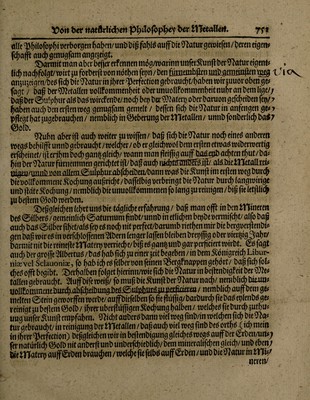 Von der natürlichen Philosophey der Metallen. 751
alle Philosophi verborgen haben/ und diß fahls auff die Natur gewiesen/ deren eigen-
schafft auch gemugsam angezeigt.
Darmit man aber diese erkennen möge/ warinn unser Kunst der Natur eigent-
lich nachfolgt/ wirt zu forderst von nöthen seyn/ den fürnembsten und gemeinsten weg
anzuzeigen/ des sich die Natur in Metallen Operation gebraucht/ haben wir zuvor oben ge-
sagt/ daß der Metallen vollkommenheit oder unvollkommenheit nuhr an dem lige/
daß der Sulphur als das wirckende/ noch bey der Matery oder darvon gescheiden sey/
haben auch den ersten weg gemugsam gemelt/ dessen sich die Natur in anfang ge-
pflegt hat zugebrauchen/ nemblich in Geberung der Metallen/ unnd sonderlich das
Gold.
Nuhn aber ist auch weiter zu wissen/ daß sich die Natur noch eines anderen
wegs behilfft unnd gebraucht/ welcher/ ob er gleichwol dem ersten etwas widerwertig
erscheint/ ist er ihm doch gantz gleich/ wann man fleissig auff das end achten thut/ da-
hin der Natur fürnemmen gerichtet ist/ daß auch nichts anders ist/ als die Metall rei-
nigen/ unnd von allem Sulphur abscheiden/ dann was die Kunst im ersten weg durch
die vollkommene Kochung außricht/ dasselbig verbringt die Natur durch langwirige
und stäte Kochung/ nemblich die unvollkommnen so lang zu reinigen/ biß sie letstlich
zu bestem Gold werden.
Deßgleichen lehrt uns die tägliche erfahrung/ daß man offt in den Mineren
des Silbers/ gemeinlich Saturnum findt/ unnd in etlichen beyde vermischt/ also daß
auch das Silber sihet/ als sey es noch nit perfect/ darumb riethen mir die bergverständi-
gen/ daß wir es in vorschlossenen Adern lenger lassen bleiben dreyssig oder viertzig Jahr/
darmit nit die reineste Matery verriecht/ biß es gantz und gar perficiert wirdt. Es sagt
auch der grosse Albertus/ das hab sich zu einer zeit begeben/ in dem Königreich Libur-
niæ vel Sclauoniæ, so hab ich es selber von seinen Bergknappen gehört/ daß sich sol-
ches offt begibt. Derhalben folget hierinn/ wie sich die Natur in bestendigkeit der Me-
tallen gebraucht. Auff diß weiß/ so muß die Kunst der Natur nach/ nemblich die un-
vollkommen durch abscheidung des Sulphurs zu perficieren/ nemblich auff dem ge-
melten Stein geworffen werde/ auff dieselben so sie flüssig/ dardurch sie das erlendt ge-
reiniget zu bestem Gold/ ihrer überflüssigen Kochung halben/ welches sie durch zuthu-
ung unser Kunst empfahen. Nicht anders dann viel weg sind/ in welchen sich die Na-
tur gebraucht/ in reinigung der Metallen/ daß auch viel weg sind des orths (ich mein
in ihrer Perfection) deßgleichen wir in bestendigung gleiches wegs auff der Erden/ un-
ser natürlich Gold nit anderst und underschiedlich/ dem mineralischen gleich/ und eben
die Matery auff Erden brauchen/ welche sie selbs auff Erden/ und die Natur in Mi-
neren/
via